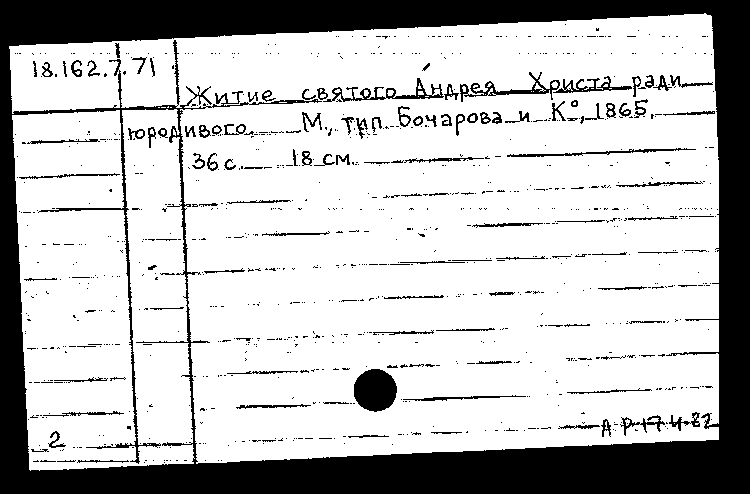 18.162.7.71
Житие святого Андрея Христа ради
юродивого. М., тип. Бочарова и К°, 1865.
36 с. 18 см.
2
А Р. 17.4.82